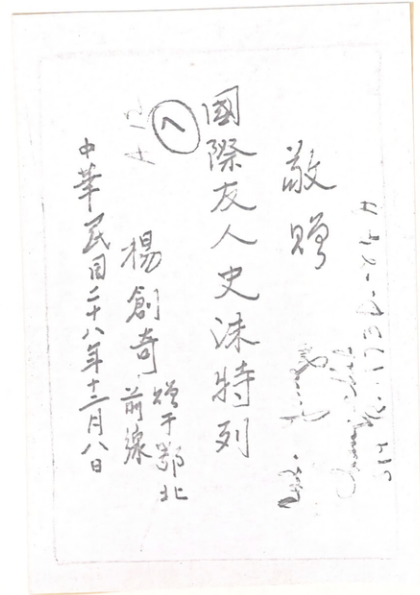 敬贈
國際友人史沫特列
八
楊創奇 贈于鄂北
前線
中華民国二十八年十二月八日